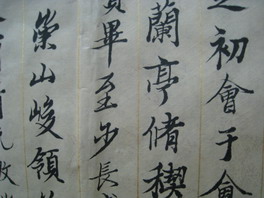 之初會于會
蘭亭脩稧
賢畢至少長
崇山峻領